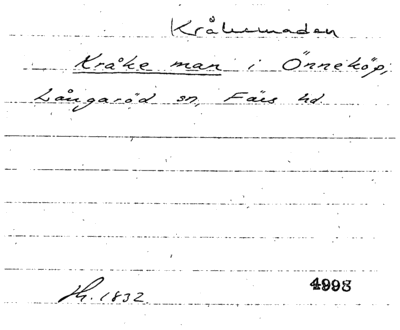 Kråkemaden
Kråke man i Önneköp,
Långaröd sn, Färs hd.
Hh. 1832
4993